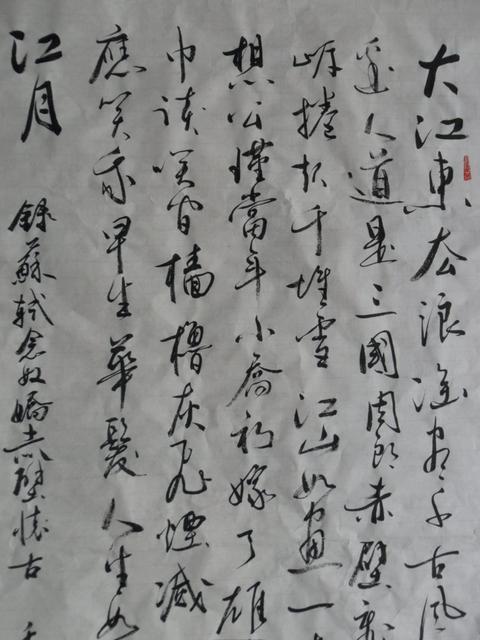 大江東去浪淘盡千古風
邊人道是三國周郎赤壁亂
岸捲起千堆雪江山如畫一
想公瑾當年小喬初嫁了雄
巾談笑間檣櫓灰飛煙滅
應笑我早生華髮人生如
江月
錄蘇軾念奴嬌赤壁懷古